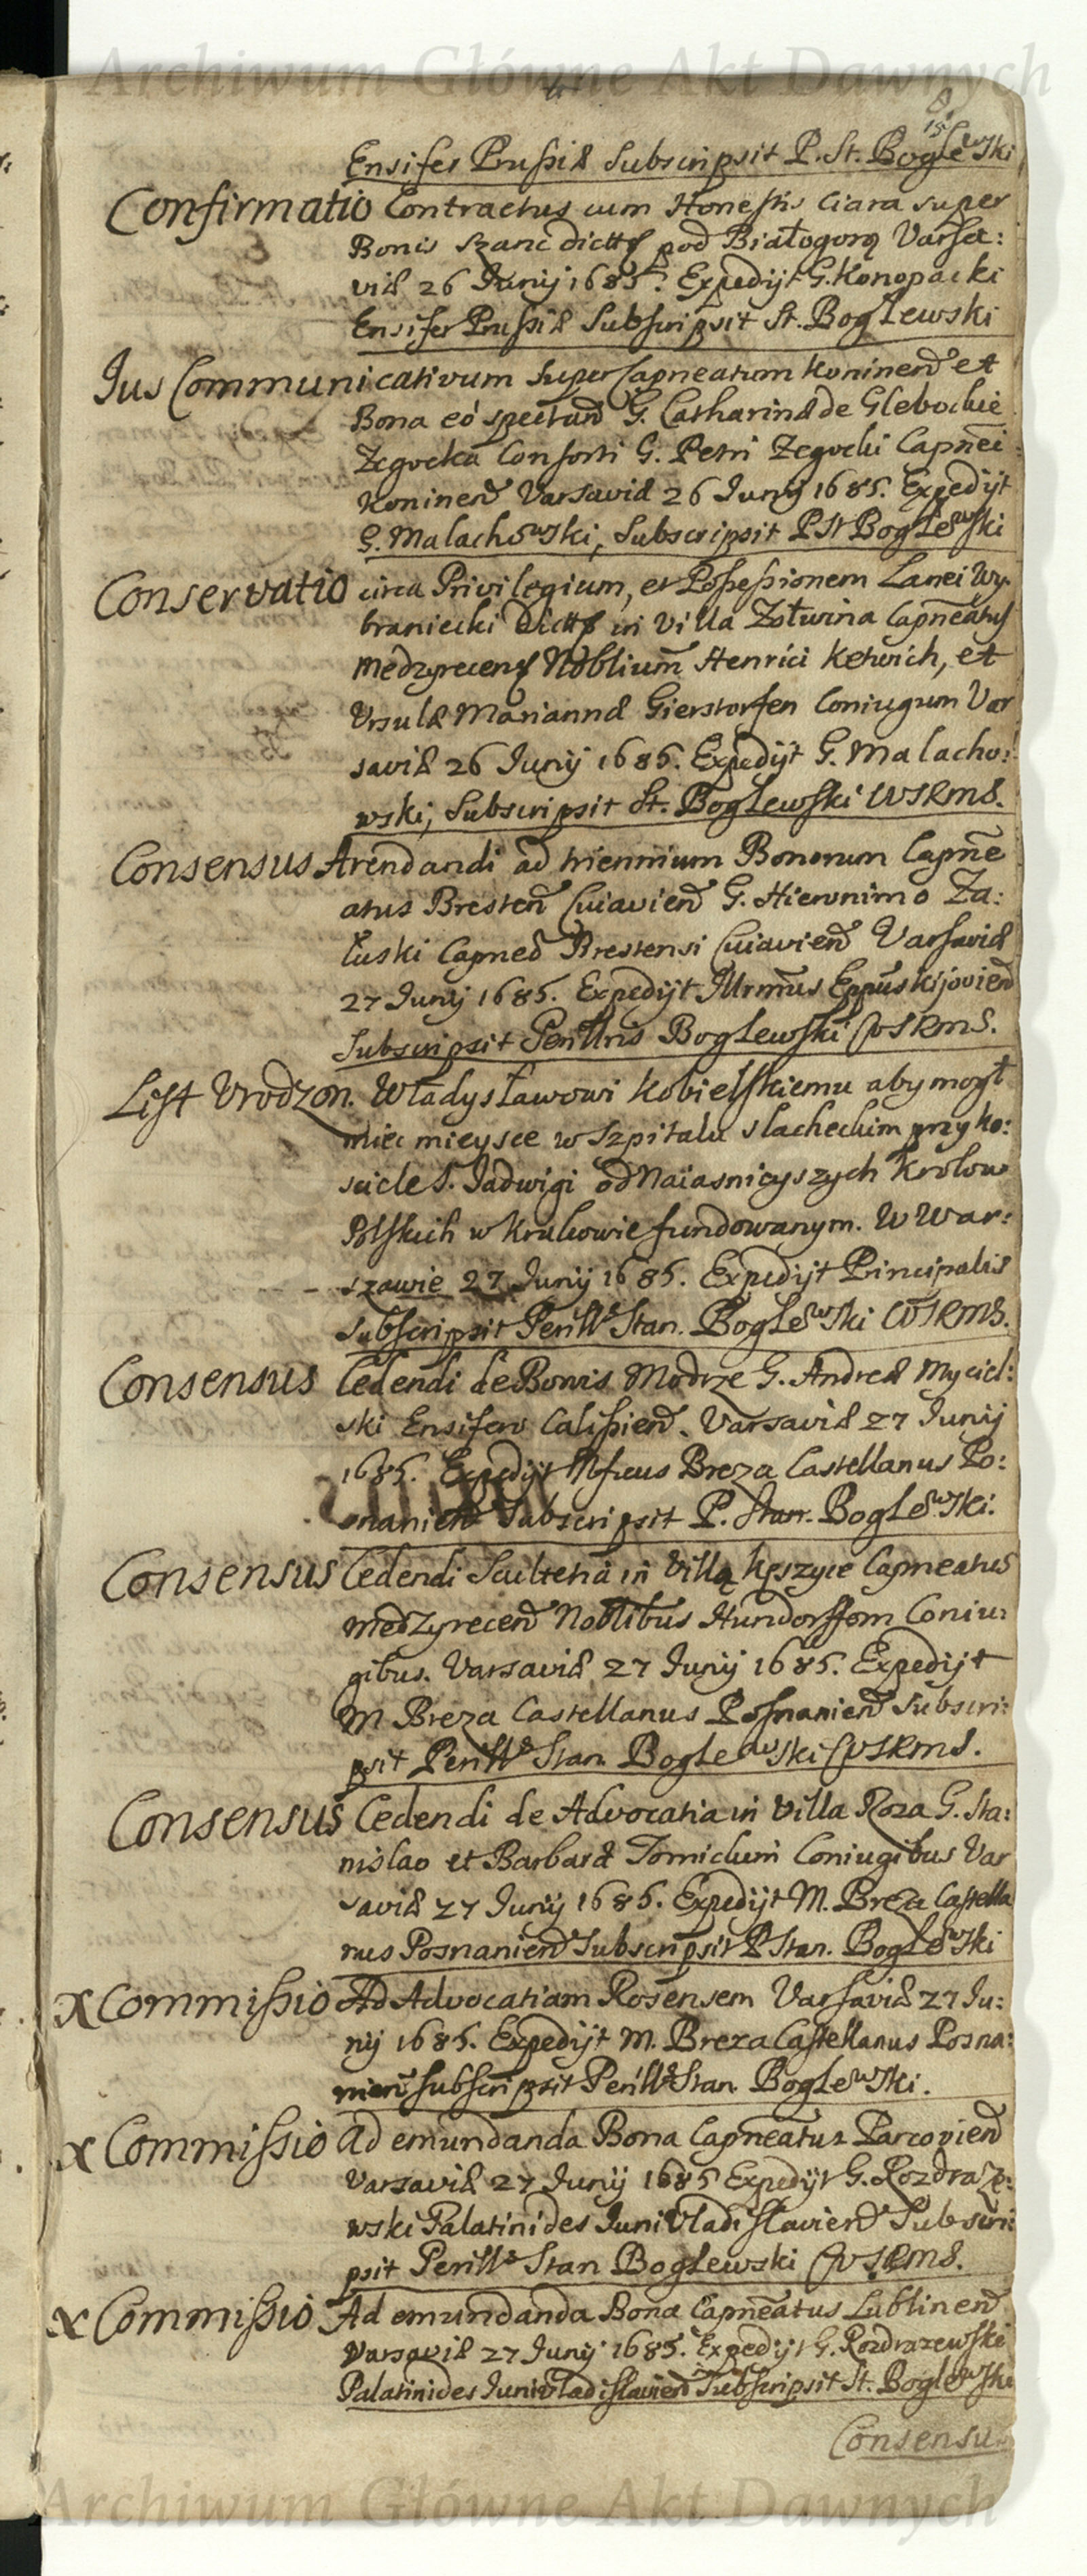 Archiwum Główne Akt Dawnych
8
15
Ensifer Prussiæ Subscripsit P. St. Boglewski
Confirmatio Contractus cum Honestis Ciara super
Bonis Szanc dictis pod Białogorą Varsa:
viæ 26 Junij 1685. Expedijt G. Konopacki
Ensifer Prussiæ Subscripsit St. Boglewski
Jus Communicativum super Capneatum Koninens et
Bona eó spectans G. Catharinæ de Glebockie
Zegocka Consorti G. Petri Zegocki Capnei
Koninens Varsaviæ 26 Junij 1685. Expedijt
G. Malachowski, Subscripsit P St Boglewski
Conservatio circa Privilegium, et Possessionem Lanei Wy:
braniecki dicti in Villa Zołwina Capneatus
Medzyrecens Noblium Henrici Ketwich, et
Ursulæ Mariannæ Gierstorfen Coniugum Var
saviæ 26 Junij 1685. Expedijt G. Malacho:
wski, Subscripsit St. Boglewski WSRMS.
Consensus Arendandi ad triennium Bonorum Capne
atus Bresten Cuiavien G. Hieronimo Za:
łuski Capneo Brestensi Cuiavien Varsaviæ
27 Junij 1685. Expedijt Illrmus Eppus Kijovien
Subscripsit Perillris Boglewski WSRMS.
List Vrodzon. Władysławowi Kobielskiemu aby mogł
miec mieysce w Szpitalu slacheckim przy ko:
sciele S. Jadwigi od Naiasnieyszych Krolow
Polskich w Krakowie fundowanym. W War:
szawie 27 Junij 1685. Expedijt Principalis
Subscripsit Perillis Stan. Boglewski WSRMS.
Consensus Cedendi de Bonis Modrze G. Andreæ Myciel:
ski Ensifero Calissien. Varsaviæ 27 Junij
1685. Expedijt Mficus Breza Castellanus Po:
snanien Subscripsit P. Stan. Boglewski.
Consensus Cedendi Scultetia in Villa Kęszyce Capneatus
Medzyrecen Noblibus Hundorffom Coniu:
gibus. Varsaviæ 27 Junij 1685. Expedijt
M Breza Castellanus Posnanien Subscri:
psit Perillis Stan. Boglewski WSRMS.
Consensus Cedendi de Advocatia in Villa Roza G. Sta:
nislao et Barbaræ Tomickim Coniugibus Var
saviæ 27 Junij 1685. Expedijt M. Breza Castella
nus Posnanien Subscripsit P Stan. Boglewski
X Commissio Ad Advocatiam Rosensem Varsaviæ 27 Ju:
nij 1685. Expedijt M. Breza Castellanus Posna:
nien Subscripsit Perillis Stan. Boglewski.
X Commissio Ad emundanda Bona Capneatus Parcovien
Varsaviæ 27 Junij 1685 Expedijt G. Rozdraże:
wski Palatinides Junivladislavien Subscri:
psit Perillis Stan Boglewski WSRMS.
X Commissio Ad emundanda Bona Capneatus Lublinen
Varsaviæ 27 Junij 1685. Expedijt G. Rozdrazewski
Palatinides Junivladislavien Subscripsit St. Boglewski
Consensus
Archiwum Główne Akt Dawnych